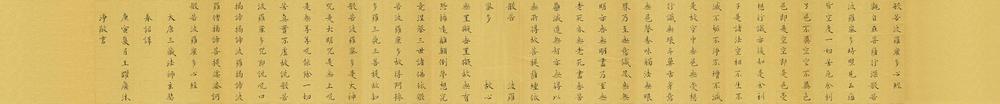 般若波羅蜜多心經
觀自在菩薩行深般若
波羅蜜多時照見五蘊
皆空度一切苦厄舍利
子色不異空空不異色
色即是空空即是色受
想行識亦復如是舍利
子是諸法空相不生不
滅不垢不淨不增不減
是故空中無色無受想
行識無眼耳鼻舌身意
無色聲香味觸法無眼
界乃至無意識界無無
明亦無無明盡乃至無
老死亦無老死盡無苦
集滅道無智亦無得以
無所得故菩提薩埵依
般若 波羅
蜜多 故心
無罣礙無罣礙故無有
恐怖遠離顛倒夢想究
竟涅槃三世諸佛依般
若波羅蜜多故得阿耨
多羅三藐三菩提故知
般若波羅蜜多是大神
咒是大明咒是無上咒
是無等等咒能除一切
苦真實不虛故說般若
波羅蜜多咒即說咒曰
揭諦揭諦波羅揭諦波
羅僧揭諦菩提薩婆訶
般若波羅蜜多心經
大唐三藏法師玄奘
奉詔譯
庚寅夏月羅廣沐
淨敬書